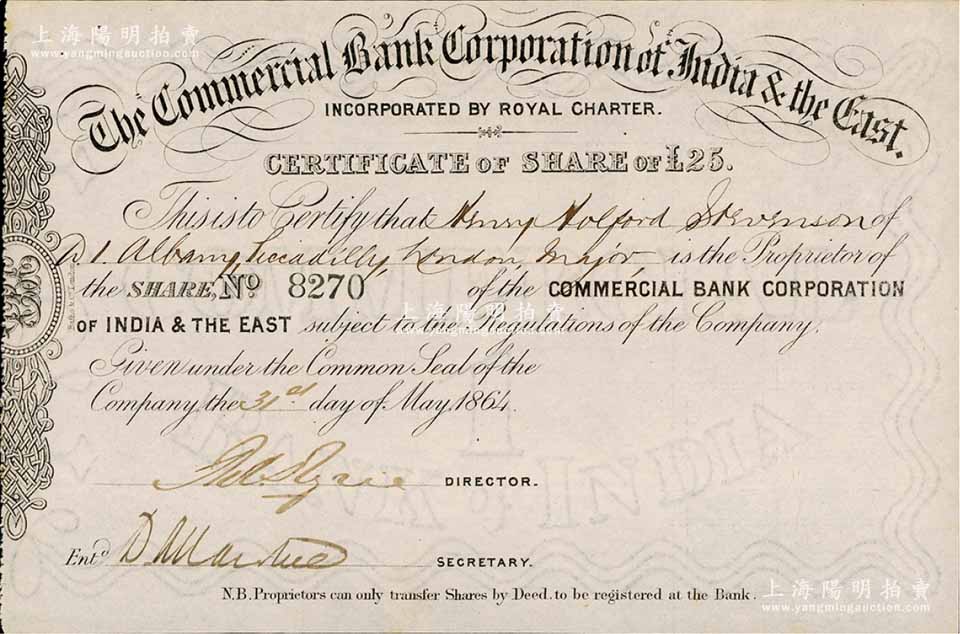 上海陽明拍賣
www.yangmingauction.com
The Commercial Bank Corporation of India & the East.
INCORPORATED BY ROYAL CHARTER.
CERTIFICATE OF SHARE OF £25.
This is to Certify that Henry Holford Stevenson of
Albany, Piccadilly, London, Major, is the Proprietor of
the SHARE, No 8270 of the COMMERCIAL BANK CORPORATION
上海陽明拍賣
www.yangmingauction.com
OF INDIA & THE EAST subject to the Regulations of the Company.
Given under the Common Seal of the
Company, the 31st day of May, 1864.
DIRECTOR.
Entd. SECRETARY.
N.B. Proprietors can only transfer Shares by Deed. to be registered at the Bank.
上海陽明拍賣
www.yangmingauction.com